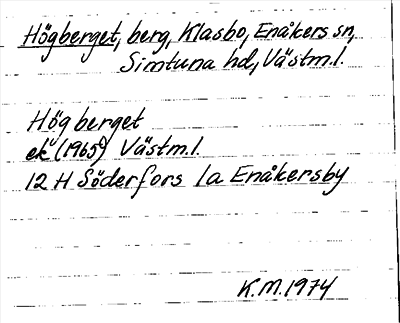 Högberget, berg, Klasbo, Enåkers sn,
Simtuna hd, Västm.l.
Högberget
ek (1965) Västm.l.
12 H Söderfors 1a Enåkersby
K.M. 1974